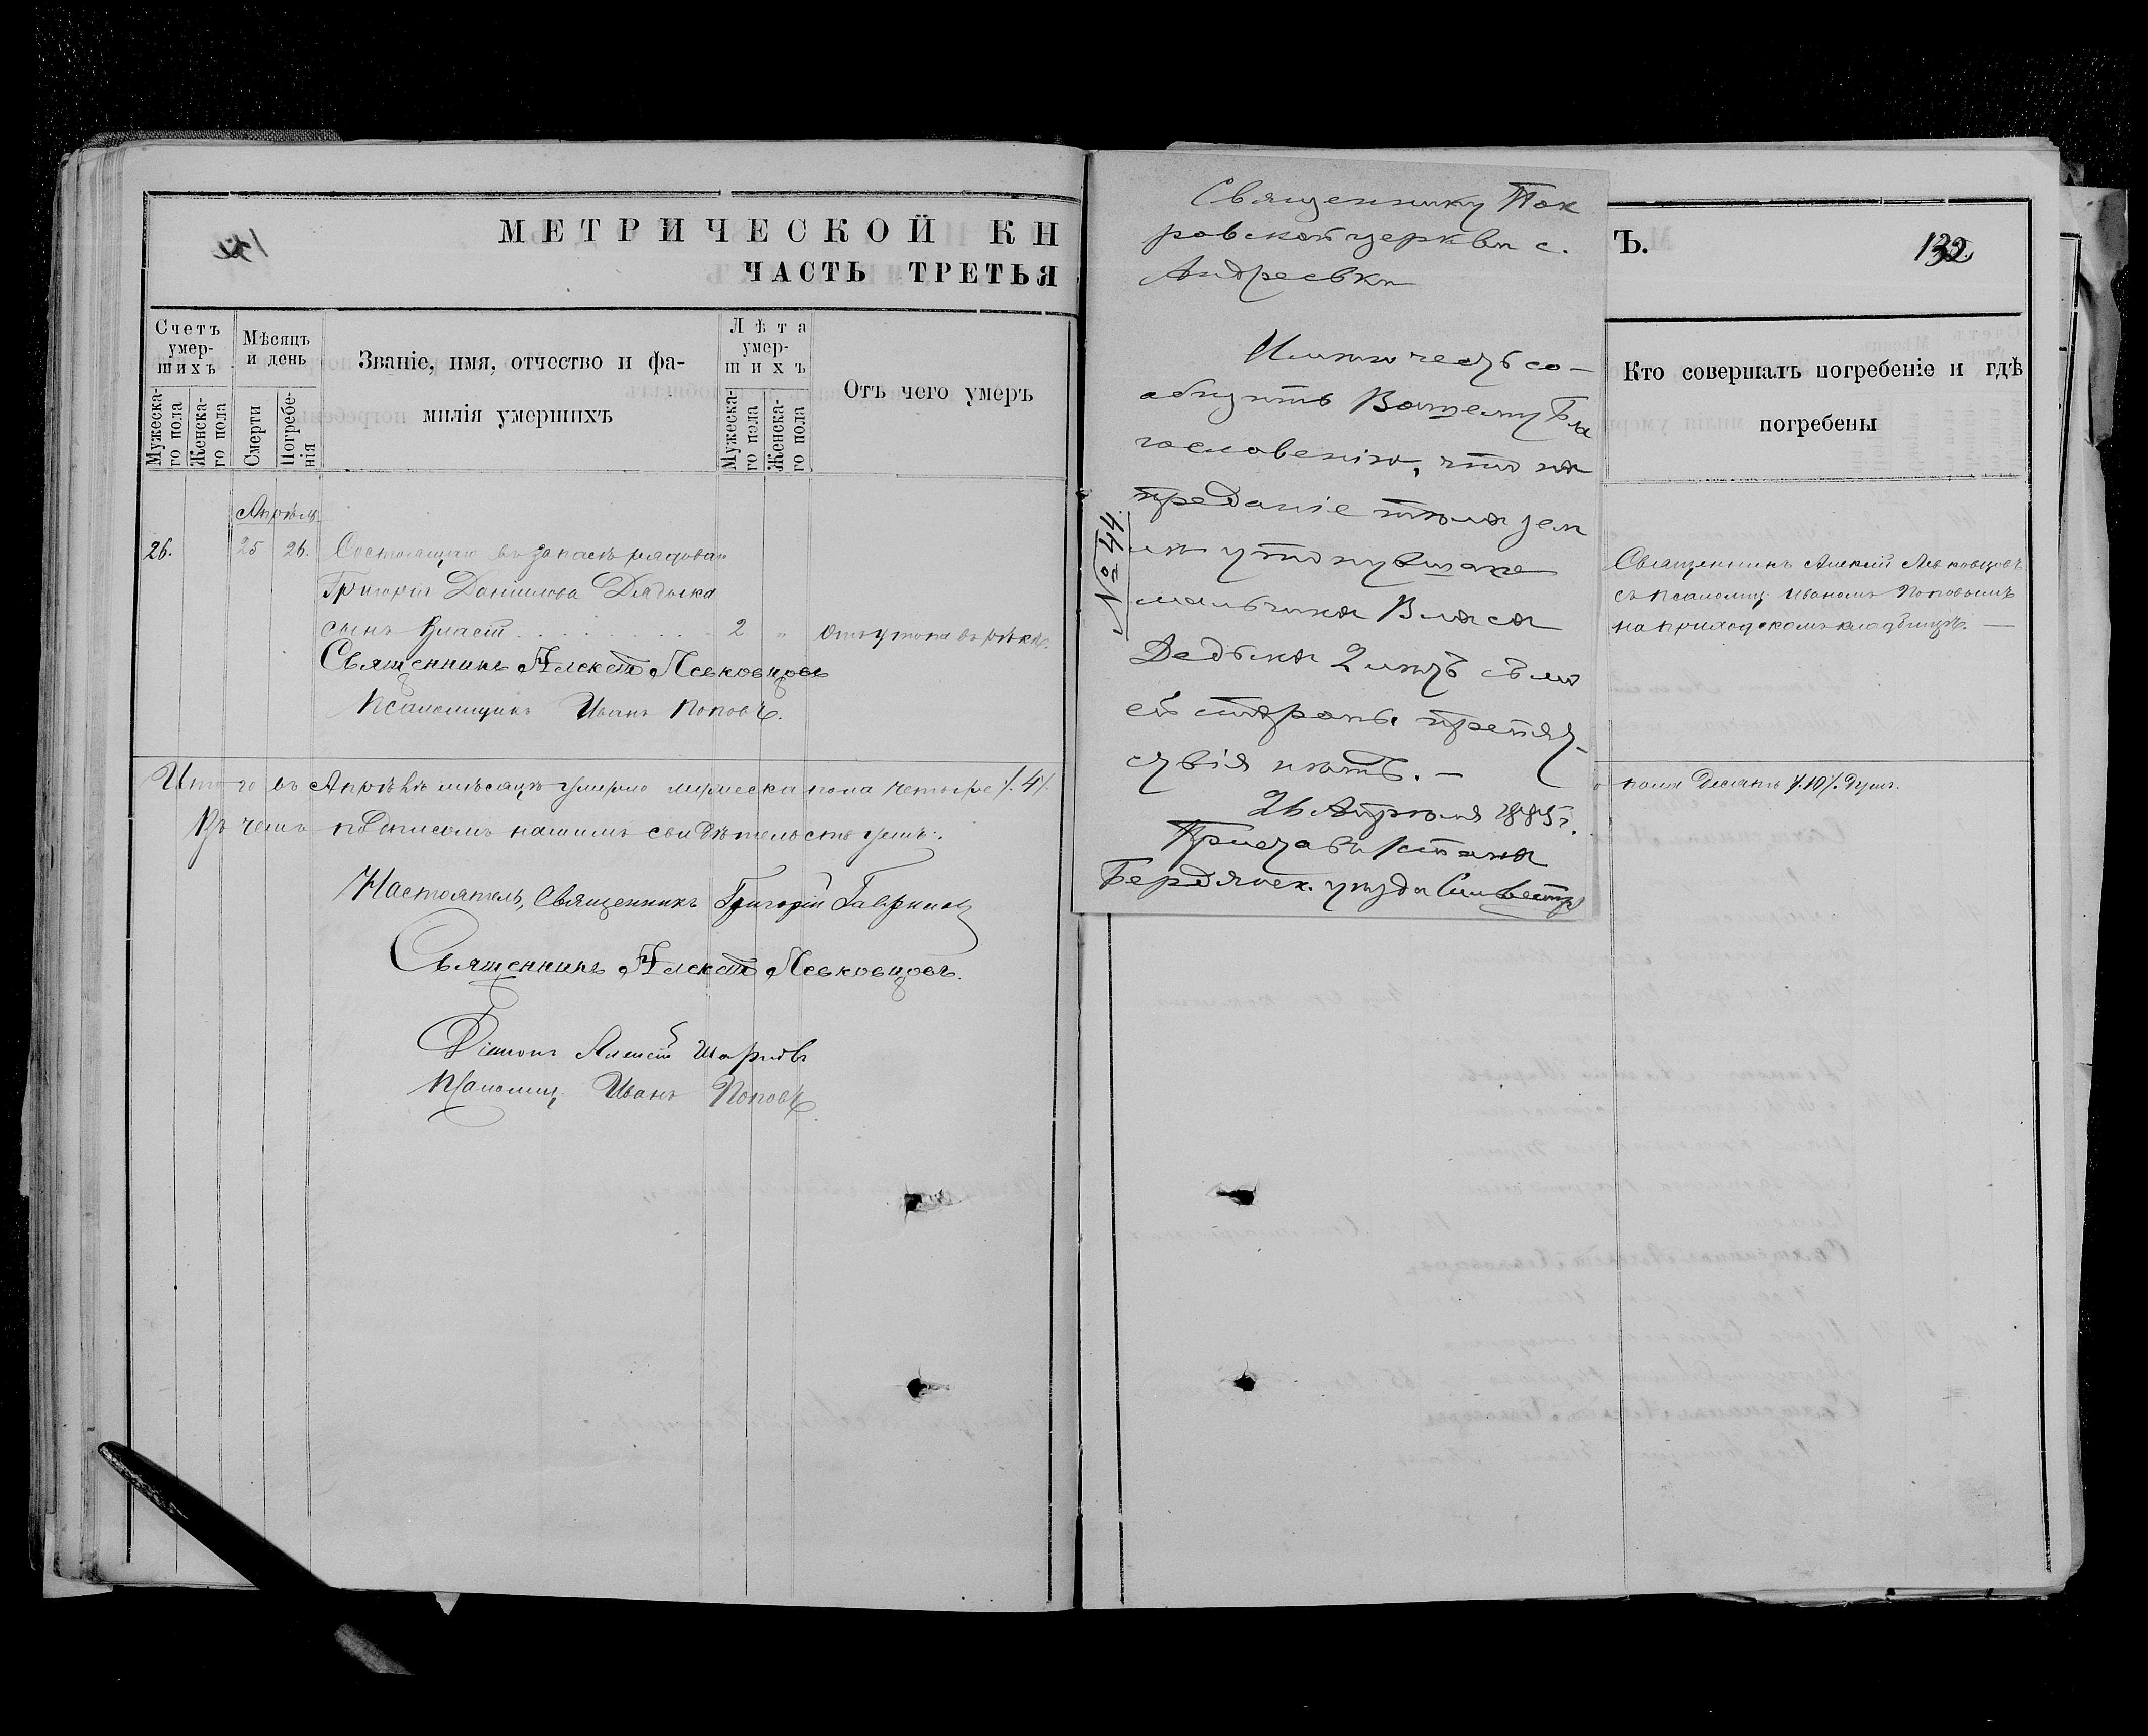 МЕТРИЧЕСКОЙ КН
ЧАСТЬ ТРЕТЬЯ
Счетъ умер-
шихъ
Мужеска-
го пола
Женска-
го пола
Мѣсяцъ
и день
Смерти
Погребе-
нія
Званіе, имя, отчество и фа-
милія умершихъ
Лѣта
умер-
шихъ
Мужеска-
го пола
Женска-
го пола
Отъ чего умеръ
Апрѣль
26. 25 26. Состоящаго въ запасѣ рядован
Григорія Даніилова Дядька
сынъ Власій 2 " Отъ утопа въ рѣкѣ.
Священникъ Алексій Левковцовъ
Псаломщикъ Иванъ Поповъ.
Итого въ Апрѣлѣ мѣсяцѣ умерло мужеска пола четыре ٪4٪
Въ чемъ подписомъ нашимъ свидѣтельствуемъ:
Настоятель, Священникъ Григорій
Священникъ Алексій Левковцовъ.
Діаконъ Алексій
Псаломщ. Иванъ Поповъ
Священнику Пок
ровской церкви с.
Андреевки
Имѣю честь со-
общить Вашему Бла
гословенію, что на
преданіе тѣла зем
лѣ утонувшаго
мальчика Власа
Дедька 2 лѣтъ съ мо
ей стороны препят-
ствія нѣтъ. —
26 Апрѣля 1885 г.
Приставъ 1 стана
Бердянск. уѣзда
№ 44.
Ъ.
132.
Кто совершалъ погребеніе и гдѣ
погребены
Священникъ Алексій Левковцовъ
съ псаломщ. Иваномъ Поповымъ
на приходскомъ кладбищѣ. —
пола Десять ٪10٪ душъ.